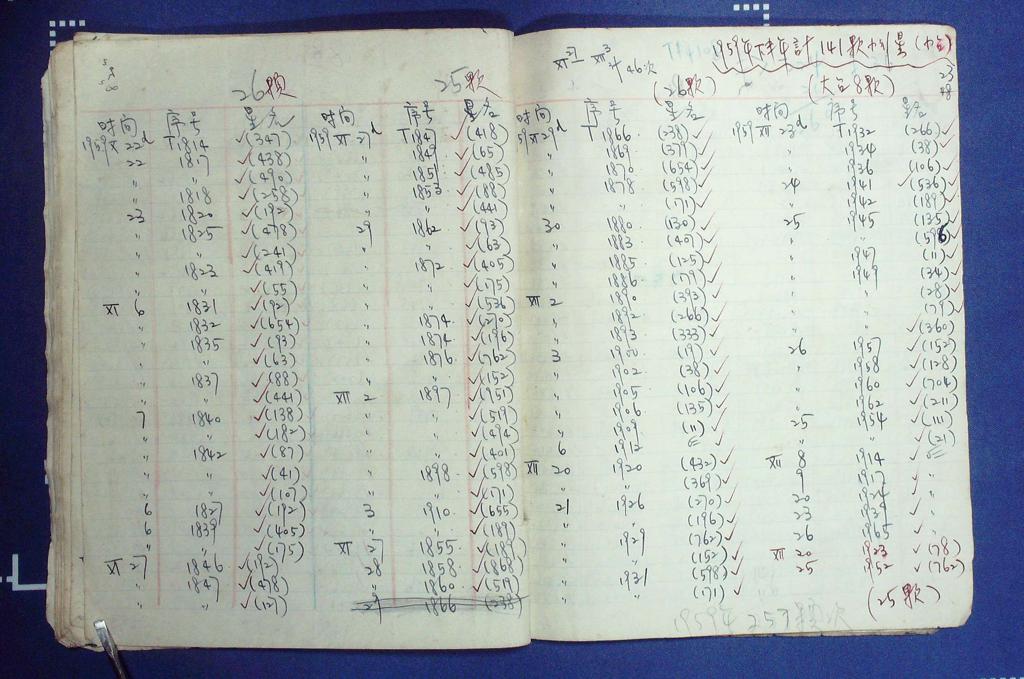 26顆
时间 序号 星名
1959 XI 22d T1814 ✓(347)
22 1817 ✓(438)
〃 〃 ✓(490)
〃 1818 ✓(258)
23 1820 ✓(192)
〃 1825 ✓(478)
〃 〃 ✓(241)
〃 1823 ✓(419)
〃 〃 ✓(55)
XII 6 1831 ✓(92)
〃 1832 ✓(654)
〃 1835 ✓(93)
〃 〃 ✓(63)
〃 1837 ✓(88)
〃 〃 ✓(441)
7 1840 ✓(138)
〃 〃 ✓(182)
〃 1842 ✓(87)
〃 〃 ✓(41)
〃 〃 ✓(107)
6 1827 ✓(192)
6 1839 ✓(405)
〃 〃 ✓(175)
XI 27 1846 ✓(192)
〃 1847 ✓(478)
〃 〃 ✓(127)
25顆
时间 序号 星名
1959 XI 27d T1847 ✓(418)
〃 1849 ✓(65)
〃 1851 ✓(485)
〃 1853 ✓(88)
〃 〃 ✓(441)
29 1862 ✓(93)
〃 〃 ✓(63)
〃 1872 ✓(405)
〃 〃 ✓(175)
〃 〃 ✓(536)
〃 1874 ✓(270)
〃 1874 ✓(196)
〃 1876 ✓(762)
〃 〃 ✓(152)
XII 2 1897 ✓(751)
〃 〃 ✓(519)
〃 〃 ✓(494)
〃 〃 ✓(401)
〃 1898 ✓(598)
〃 〃 ✓(171)
3 1910 ✓(655)
〃 〃 ✓(189)
XI 27 1855 ✓(189)
28 1858 ✓(868)
〃 1860 ✓(519)
29 1866 (238)
(26顆)
时间 序号 星名
59 XI 29d T1866 (238)✓
〃 1869 (379)✓
〃 1870 (654)✓
〃 1878 (598)✓
〃 〃 (171)✓
30 1880 (130)✓
〃 1883 (40)✓
〃 1885 (125)✓
〃 1886 (79)✓
XII 2 1890 (393)✓
〃 1892 (266)✓
〃 1893 (333)✓
3 1900 (19)✓
〃 1902 (38)✓
〃 1905 (106)✓
〃 1906 (135)✓
〃 1909 (11)✓
6 1912
XII 20 1920 (432)✓
〃 〃 (369)✓
21 1926 (270)✓
〃 〃 (196)✓
〃 1929 (762)✓
〃 〃 (152)✓
〃 1931 (598)✓
〃 〃 (171)✓
1959年下半年計141顆小行星
(大白8顆)
时间 序号 星名
1959 XII 23d T1932 (266)✓
〃 1934 (38)✓
〃 1936 (106)✓
24 1941 ✓(536)✓
〃 1942 (189)✓
25 1945 (135)✓
〃 〃 (596)✓
〃 1947 (11)✓
〃 1949 (34)✓
〃 〃 (28)✓
〃 〃 (79)✓
〃 〃 ✓(360)
26 1957 ✓(152)
〃 1958 ✓(128)
〃 1960 ✓(704)
〃 1962 ✓(211)
25 1954 ✓(111)
〃 〃 ✓(21)
XII 8 1914
9 1917 〃
20 1924 〃
23 1939 〃
26 1965 〃
XII 20 1923 ✓(78)
25 1952 ✓(762)
(25顆)
1959年257顆次